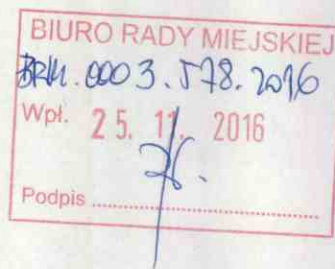 BIURO RADY MIEJSKIEJ
BRM.0003.578.2016
Wpł. 25. 11. 2016
Podpis ....................